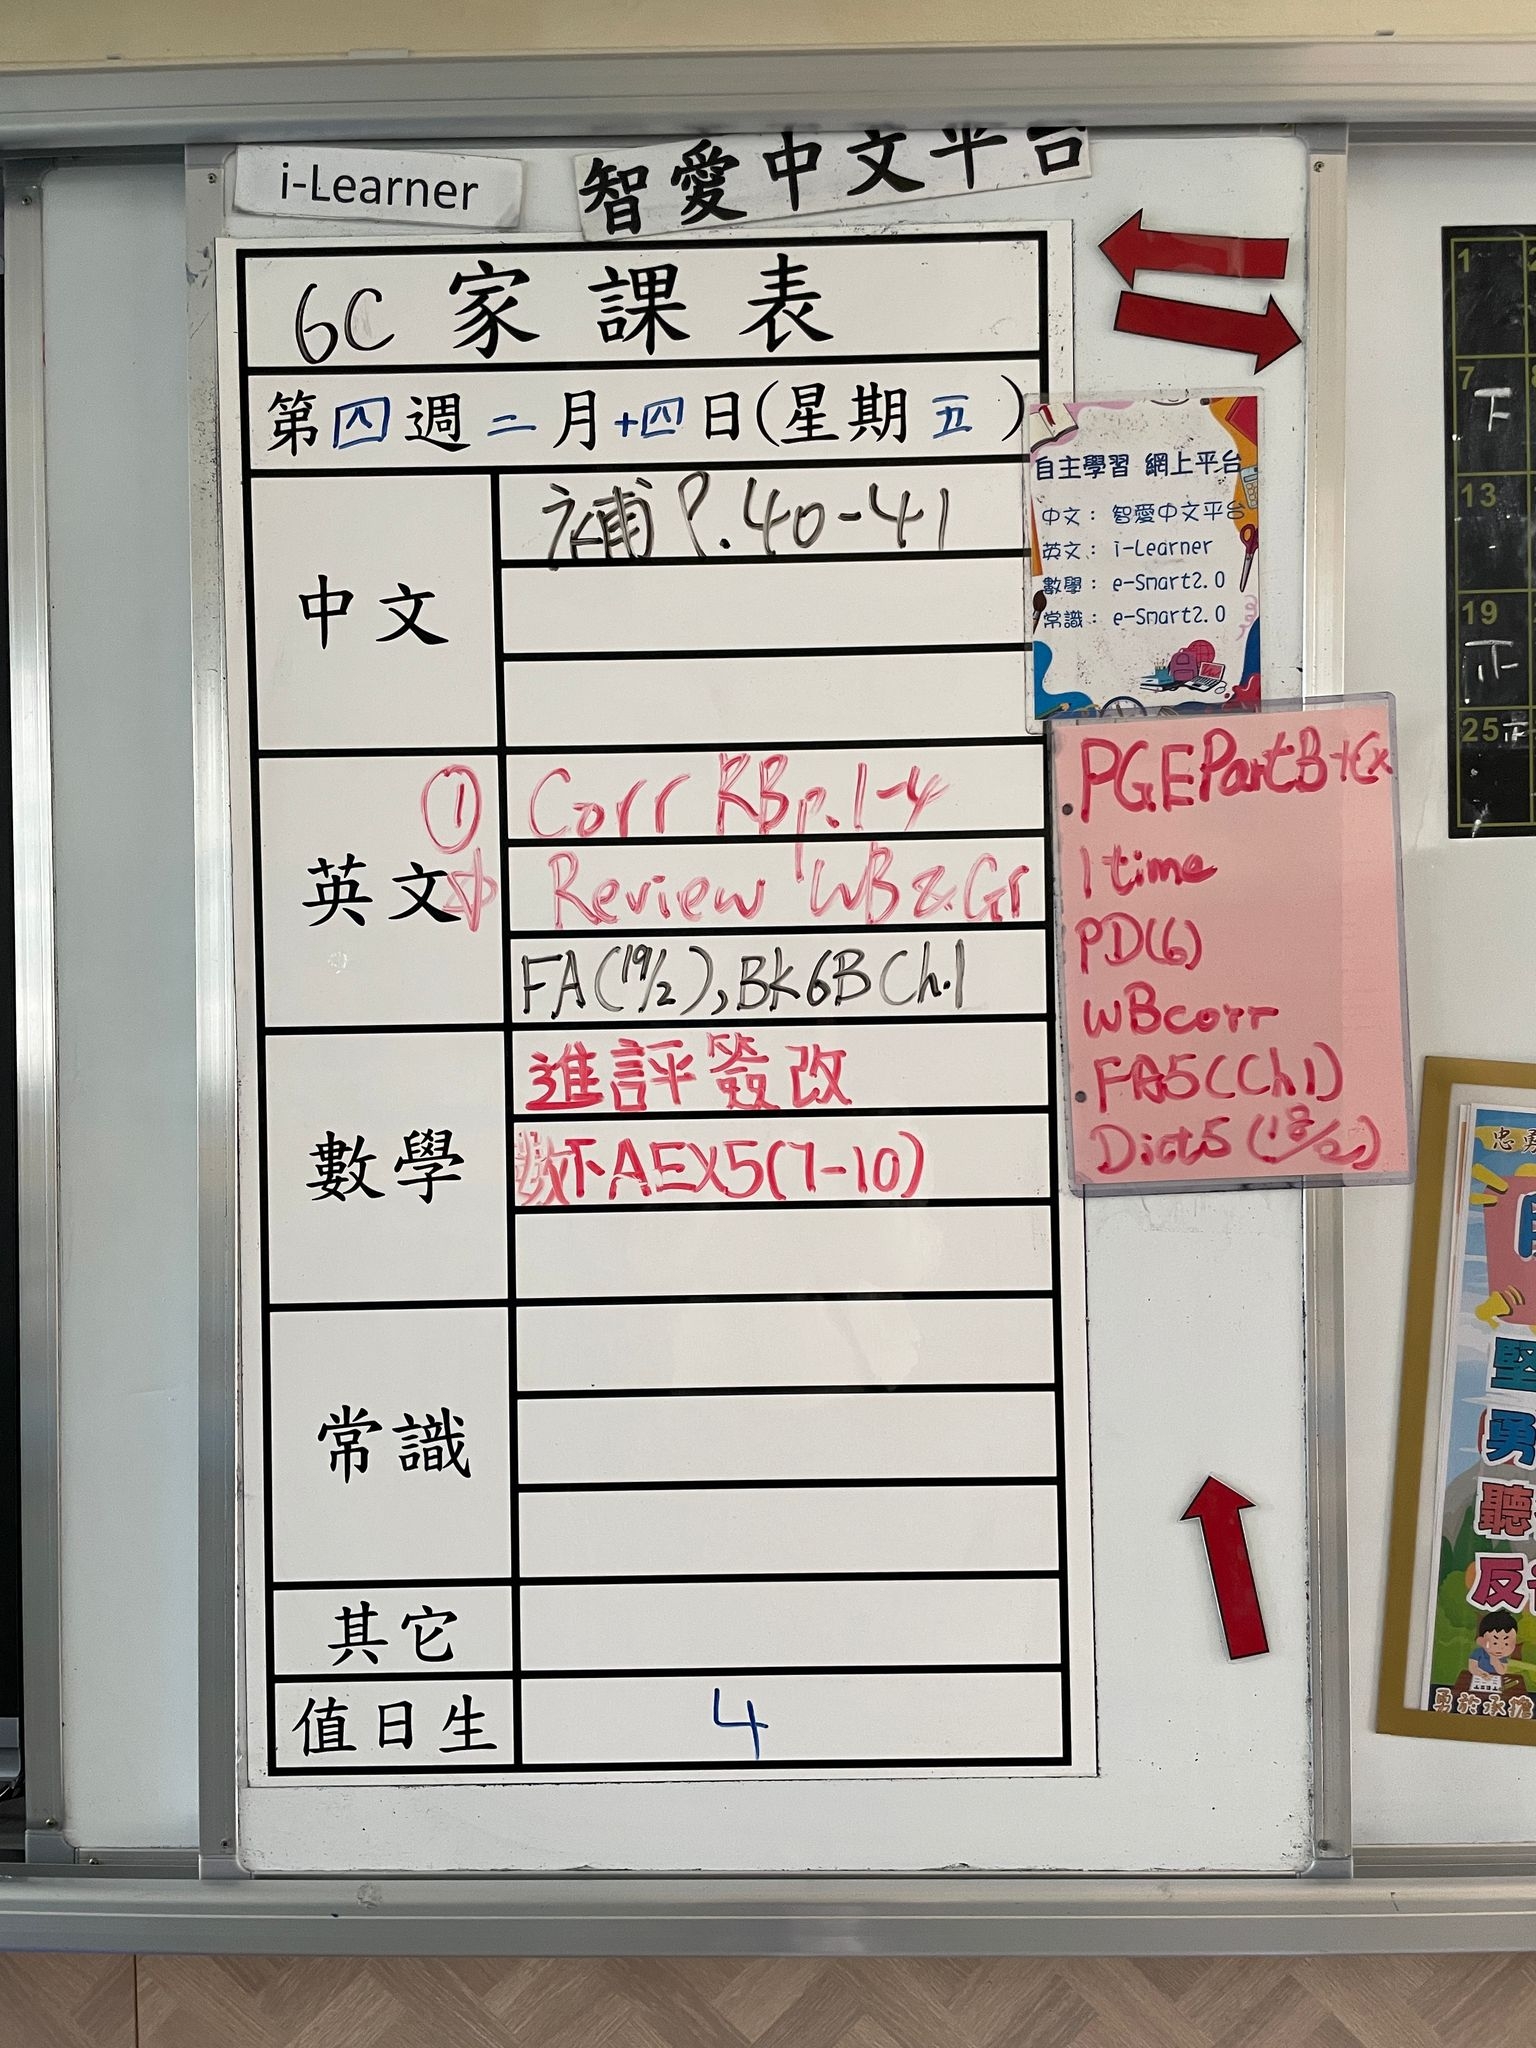 i-Learner
智愛中文平台
6C 家課表
第四週二月十四日(星期五)
中文
補 P.40-41
英文
① Corr RB p.1-4
Review WB & Gr
FA(19/2), BK6B Ch.1
數學
進評簽改
数下AEX5(7-10)
常識
其它
值日生
4
自主學習 網上平台
中文： 智愛中文平台
英文： i-Learner
數學： e-Smart2.0
常識： e-Smart2.0
PGE Part B + Ex
1 time
PD(6)
WB corr
FA5(Ch1)
Dict5 (18/2)
1
7
下
13
19
正
25
正
忠勇
堅
勇
聽
反
勇於承擔